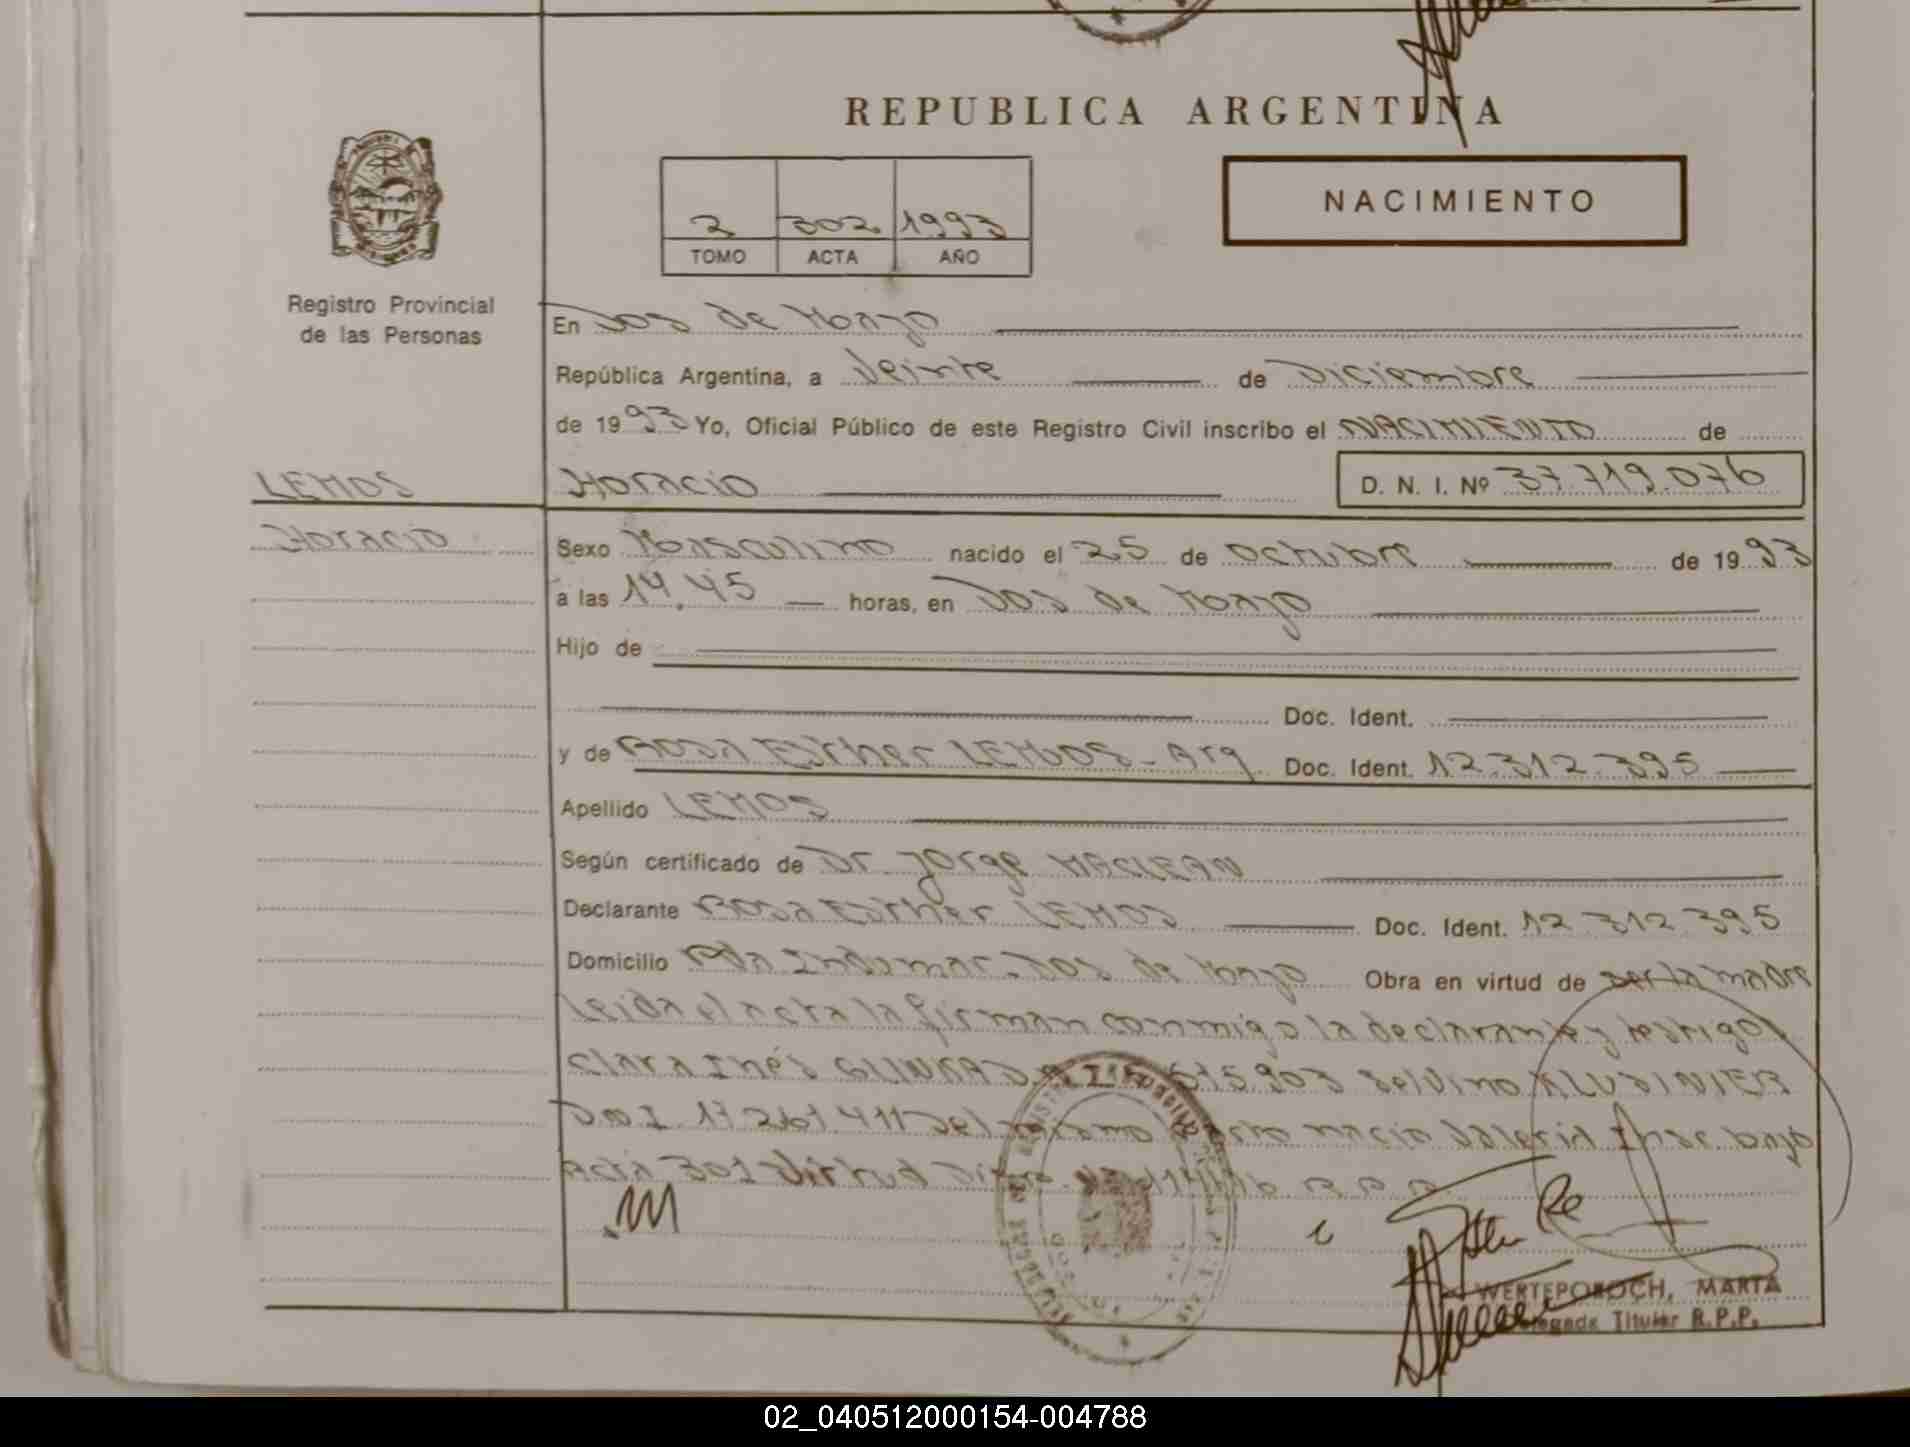 REPUBLICA ARGENTINA
NACIMIENTO
2 302 1993
TOMO ACTA AÑO
Registro Provincial
de las Personas
En Dos de Mayo
República Argentina, a Veinte de Diciembre
de 1993 Yo, Oficial Público de este Registro Civil inscribo el NACIMIENTO de
LEMOS Horacio D. N. I. Nº 37.719.076
Horacio
Sexo Masculino nacido el 25 de octubre de 1993
a las 14.45 horas, en Dos de Mayo
Hijo de
Doc. Ident.
y de Rosa Esther LEMOS - Arg. Doc. Ident. 12.312.395
Apellido LEMOS
Según certificado de Dr. Jorge MACLEAN
Declarante Rosa Esther LEMOS Doc. Ident. 12.312.395
Domicilio Pda Indumar. Dos de Mayo Obra en virtud de ser la madre
Leida el acta la firman conmigo la declarante y testigo
Clara Inés 615.903 Selvino
D.N.I. 17.261.411 Del mismo parto nació Valeria Inse bajo
Acta 301 Virtud R.P.P.
WERTEPOROCH, MARTA
Delegada Titular R.P.P.
02_040512000154-004788